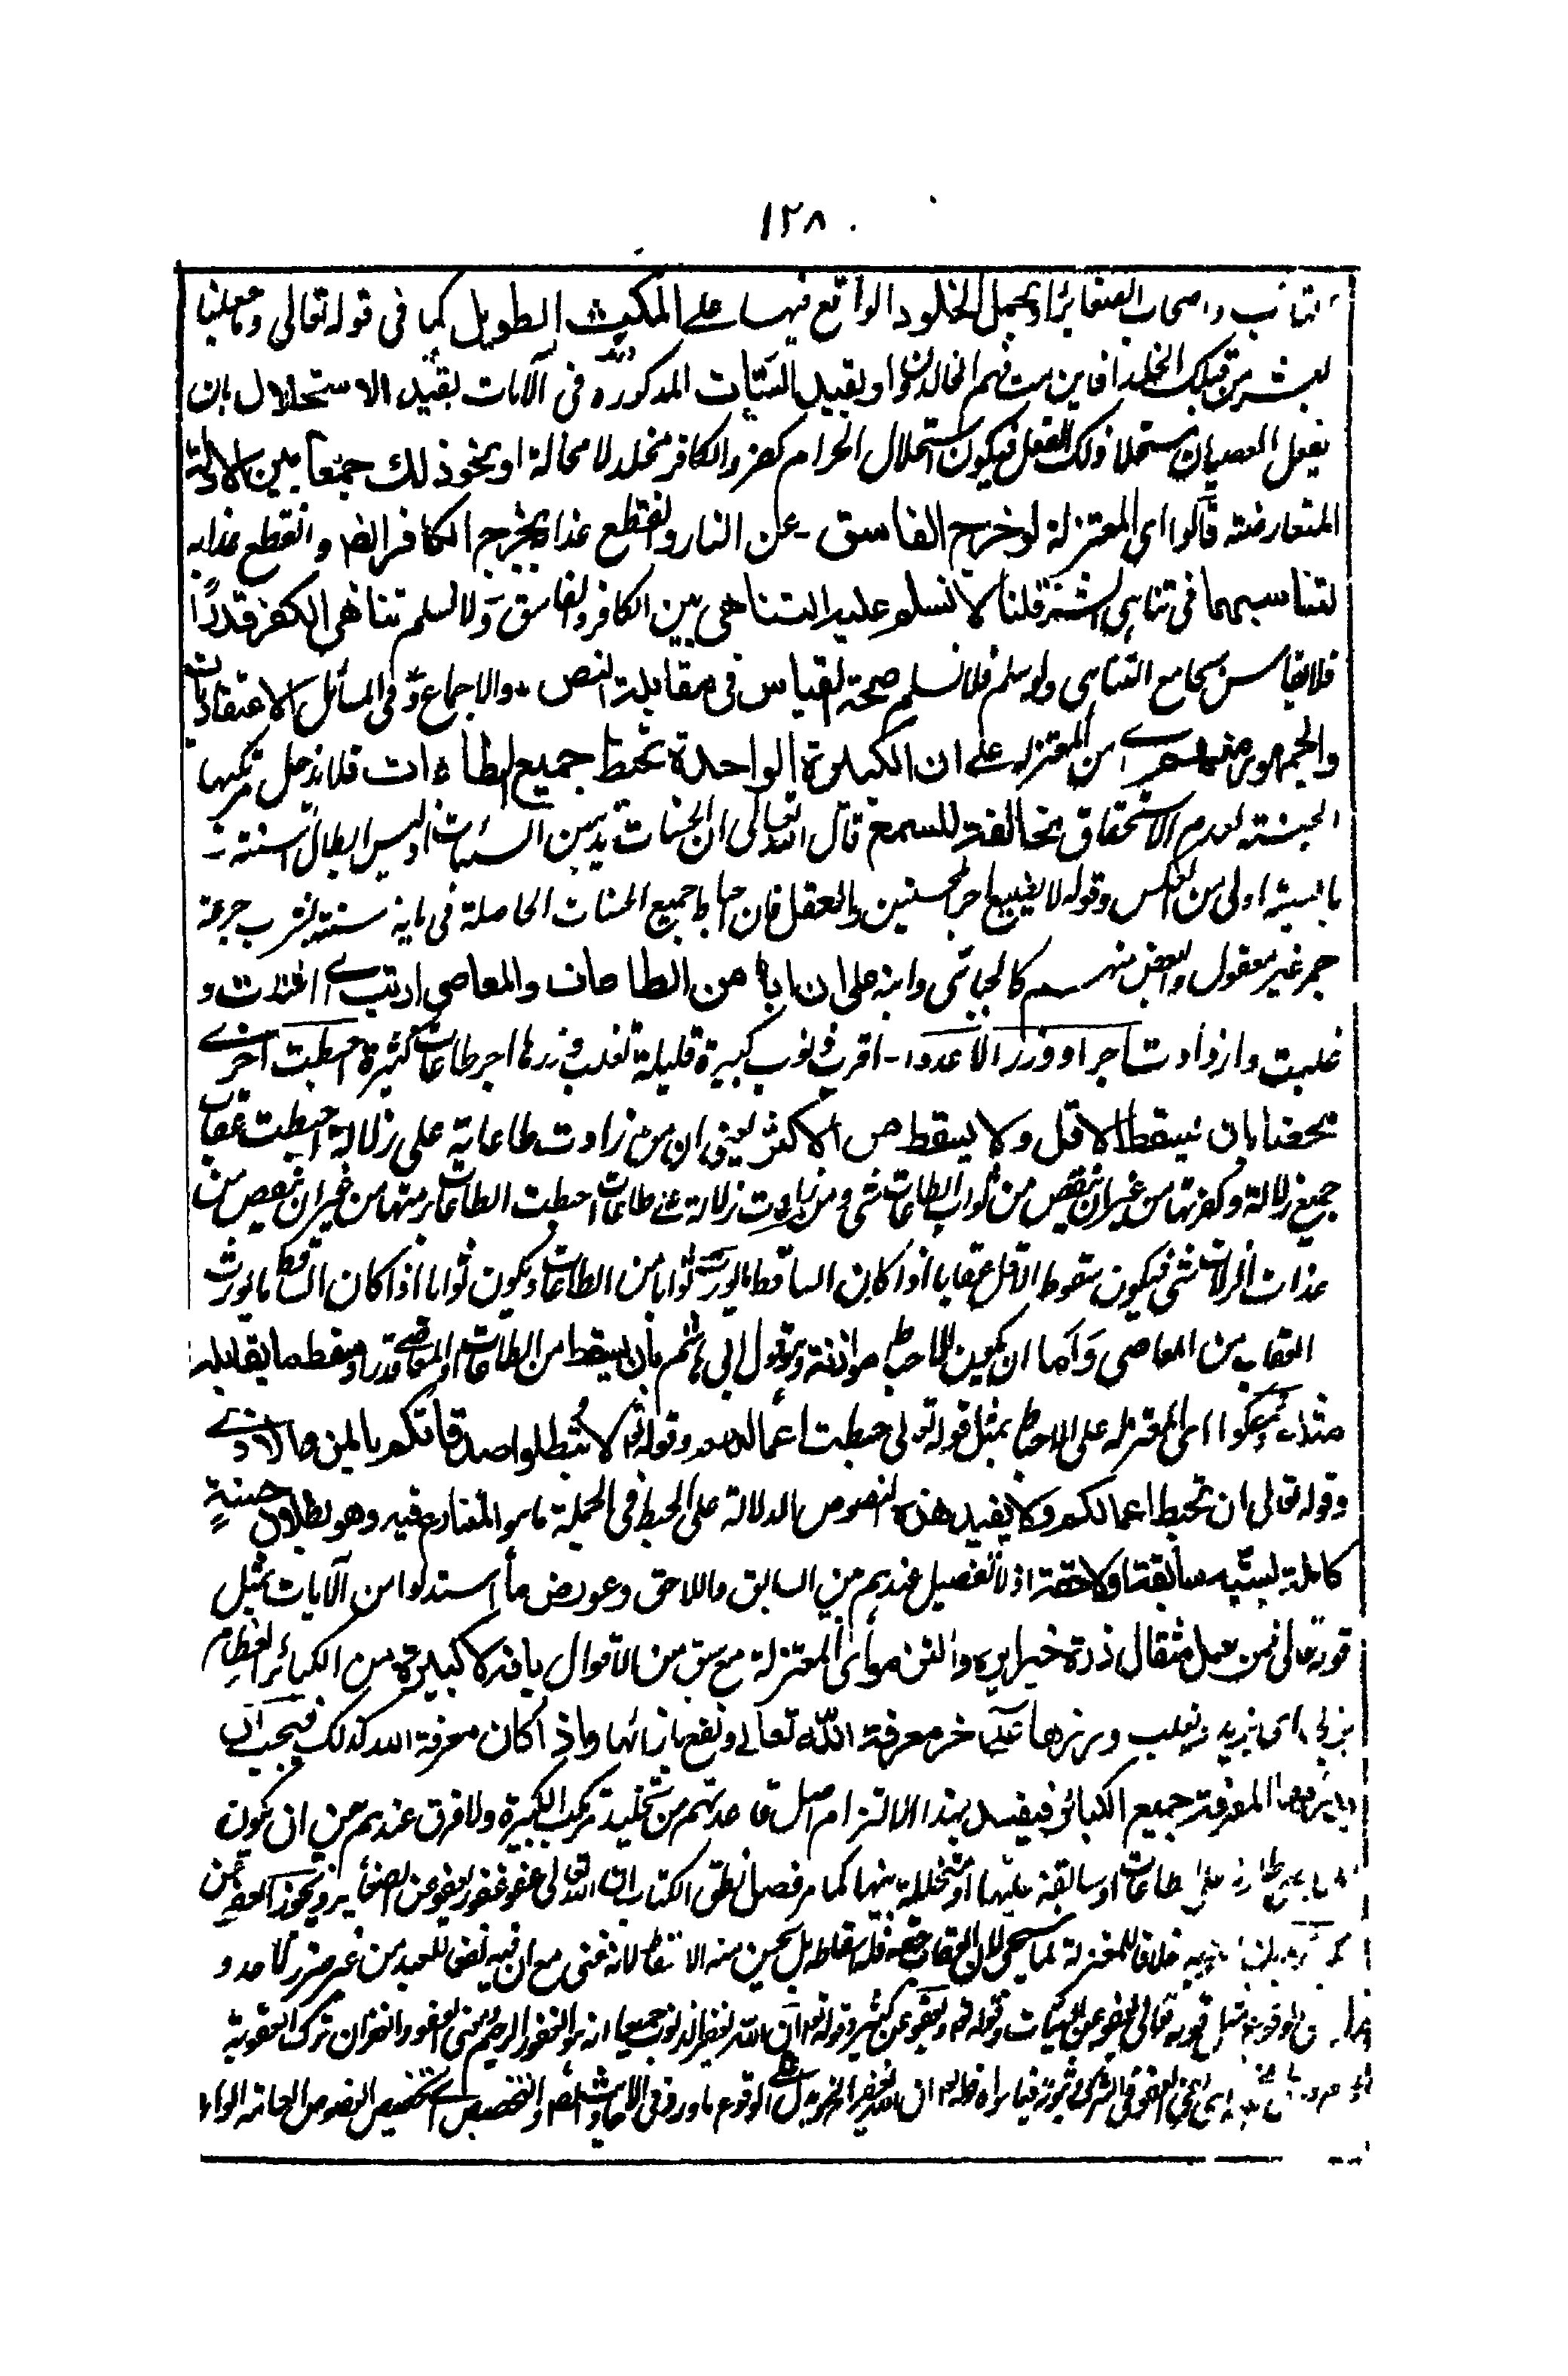 ١٢٨
التائب واصحاب الصغائر او يحمل الخلود الواقع فيها على المكث الطويل كما فى قوله تعالى وما جعلنا
لبشر من قبلك الخلد افاين مت فهم الخالدون او بقييد السيئات المذكورة فى الآيات بقيد الاستحلال بان
يفعل العصيان مستحلا ذلك الفعل فيكون استحلال الحرام كفر والكافر مخلد لا محالة او نحو ذلك جمعا بين الادلة
المتعارضة قالوا اى المعتزلة لو خرج الفاسق عن النار وانقطع عذابه يخرج الكافر ايضا وانقطع عذابه
لتناسبهما فى تناهى قلنا لا نسلم علية التناهى بين الكافر والفاسق ولا نسلم تناهى الكفر قدرا
فلا يقاس بجامع التناهى ولو سلم فلا نسلم صحة القياس فى مقابلة النص والاجماع و فى المسائل الاعتقاديات
والجمهور منهم اى من المعتزلة على ان الكبيرة الواحدة تحبط جميع الطاعات فلا يدخل مرتكبها
الجنة لعدم الاستحقاق مخالفة للسمع قال الله تعالى ان الحسنات يذهبن السيئات وليس ابطال الحسنة
بالسيئة اولى من العكس وقوله لا يضيع اجر المحسنين والعقل فان احباط جميع الحسنات الحاصلة فى ماية سنة بشرب جرعة
خمر غير معقول والبعض منهم كالجبائى وابنه على ان ايا من الطاعات والمعاصى اربت اى اغلات و
غلبت وازدادت اجرا او وزرا لا عددا - اذ رب ذنوب كبيرة قليلة تغلب وزرها اجر طاعات كثيرة احبطت الاخرى
محضا بان يسقط الاقل ولا يسقط من الاكثر يعنى ان من زادت طاعاته على زلاته احبطت عقاب
جميع زلاته وكفرتها من غير ان ينقص من ثواب الطاعات شى ومن زادت زلاته على طاعاته احبطت الطاعات برمتها من غير ان ينقص من
عذاب الزلات شى فيكون سقوط الاقل عقابا اذا كان الساقط ما يورث ثوابا من الطاعات ويكون ثوابا اذا كان الساقط ما يورث
العقاب من المعاصى وَاما ان يكون الاحباط موازنة وهو قول ابى هاشم بان يسقط من الطاعات او المعاصى قدرا ويسقط ما يقابله
مثله تمسكوا اى المعتزلة على الاحباط بمثل قوله تعالى حبطت اعمالهم وقوله تعالى لا تبطلوا صدقاتكم بالمن والاذى
وقوله تعالى ان تحبط اعمالكم ولا يفيد هذه النصوص الدلالة على الحبط فى الجملة ما هو المتنازع فيه وهو بطلان حسنة
كاملة لسيئة سابقة او لاحقة اذ لا تفصيل عندهم من السابق واللاحق وعورض ما استدلوا من الآيات بمثل
قوله تعالى فمن يعمل مثقال ذرة خيرا يره واتفقوا اى المعتزلة مع سبق من الاقوال بانه لا كبيرة من الكبائر العظام
يربى اى يزيد ويغلب وزرها على اجر معرفة الله تعالى ونفع بازائها واذا كان معرفة الله كذلك فيجب ان
المعرفة جميع الكبائر فيفسد بهذا الالتزام اصل قاعدتهم من تخليد مرتكب الكبيرة ولا فرق عندهم من ان يكون
طارية على طاعات او سابقة عليها او متخللة بينها كما مر فصل نطق الكتاب ان الله تعالى عفو غفور يعفو عن الصغائر ويجوز العفو عن
خلافا للمعتزلة كما سيجى لان العقاب حقه فله اسقاطه بل يحسن منه الاسقاط لانه غنى مع ان فيه نفعا للعبد من غير ضرر لاحد و
قوله تعالى يعفو عن السيئات وقوله تعالى ويعفو عن كثير وقوله تعالى ان الله يغفر الذنوب جميعا انه هو الغفور الرحيم ومعنى العفو والغفران ترك العقوبة
الوقوع ما ورد فى الاحاديث والتخصيص اى تخصيص النصوص العامة